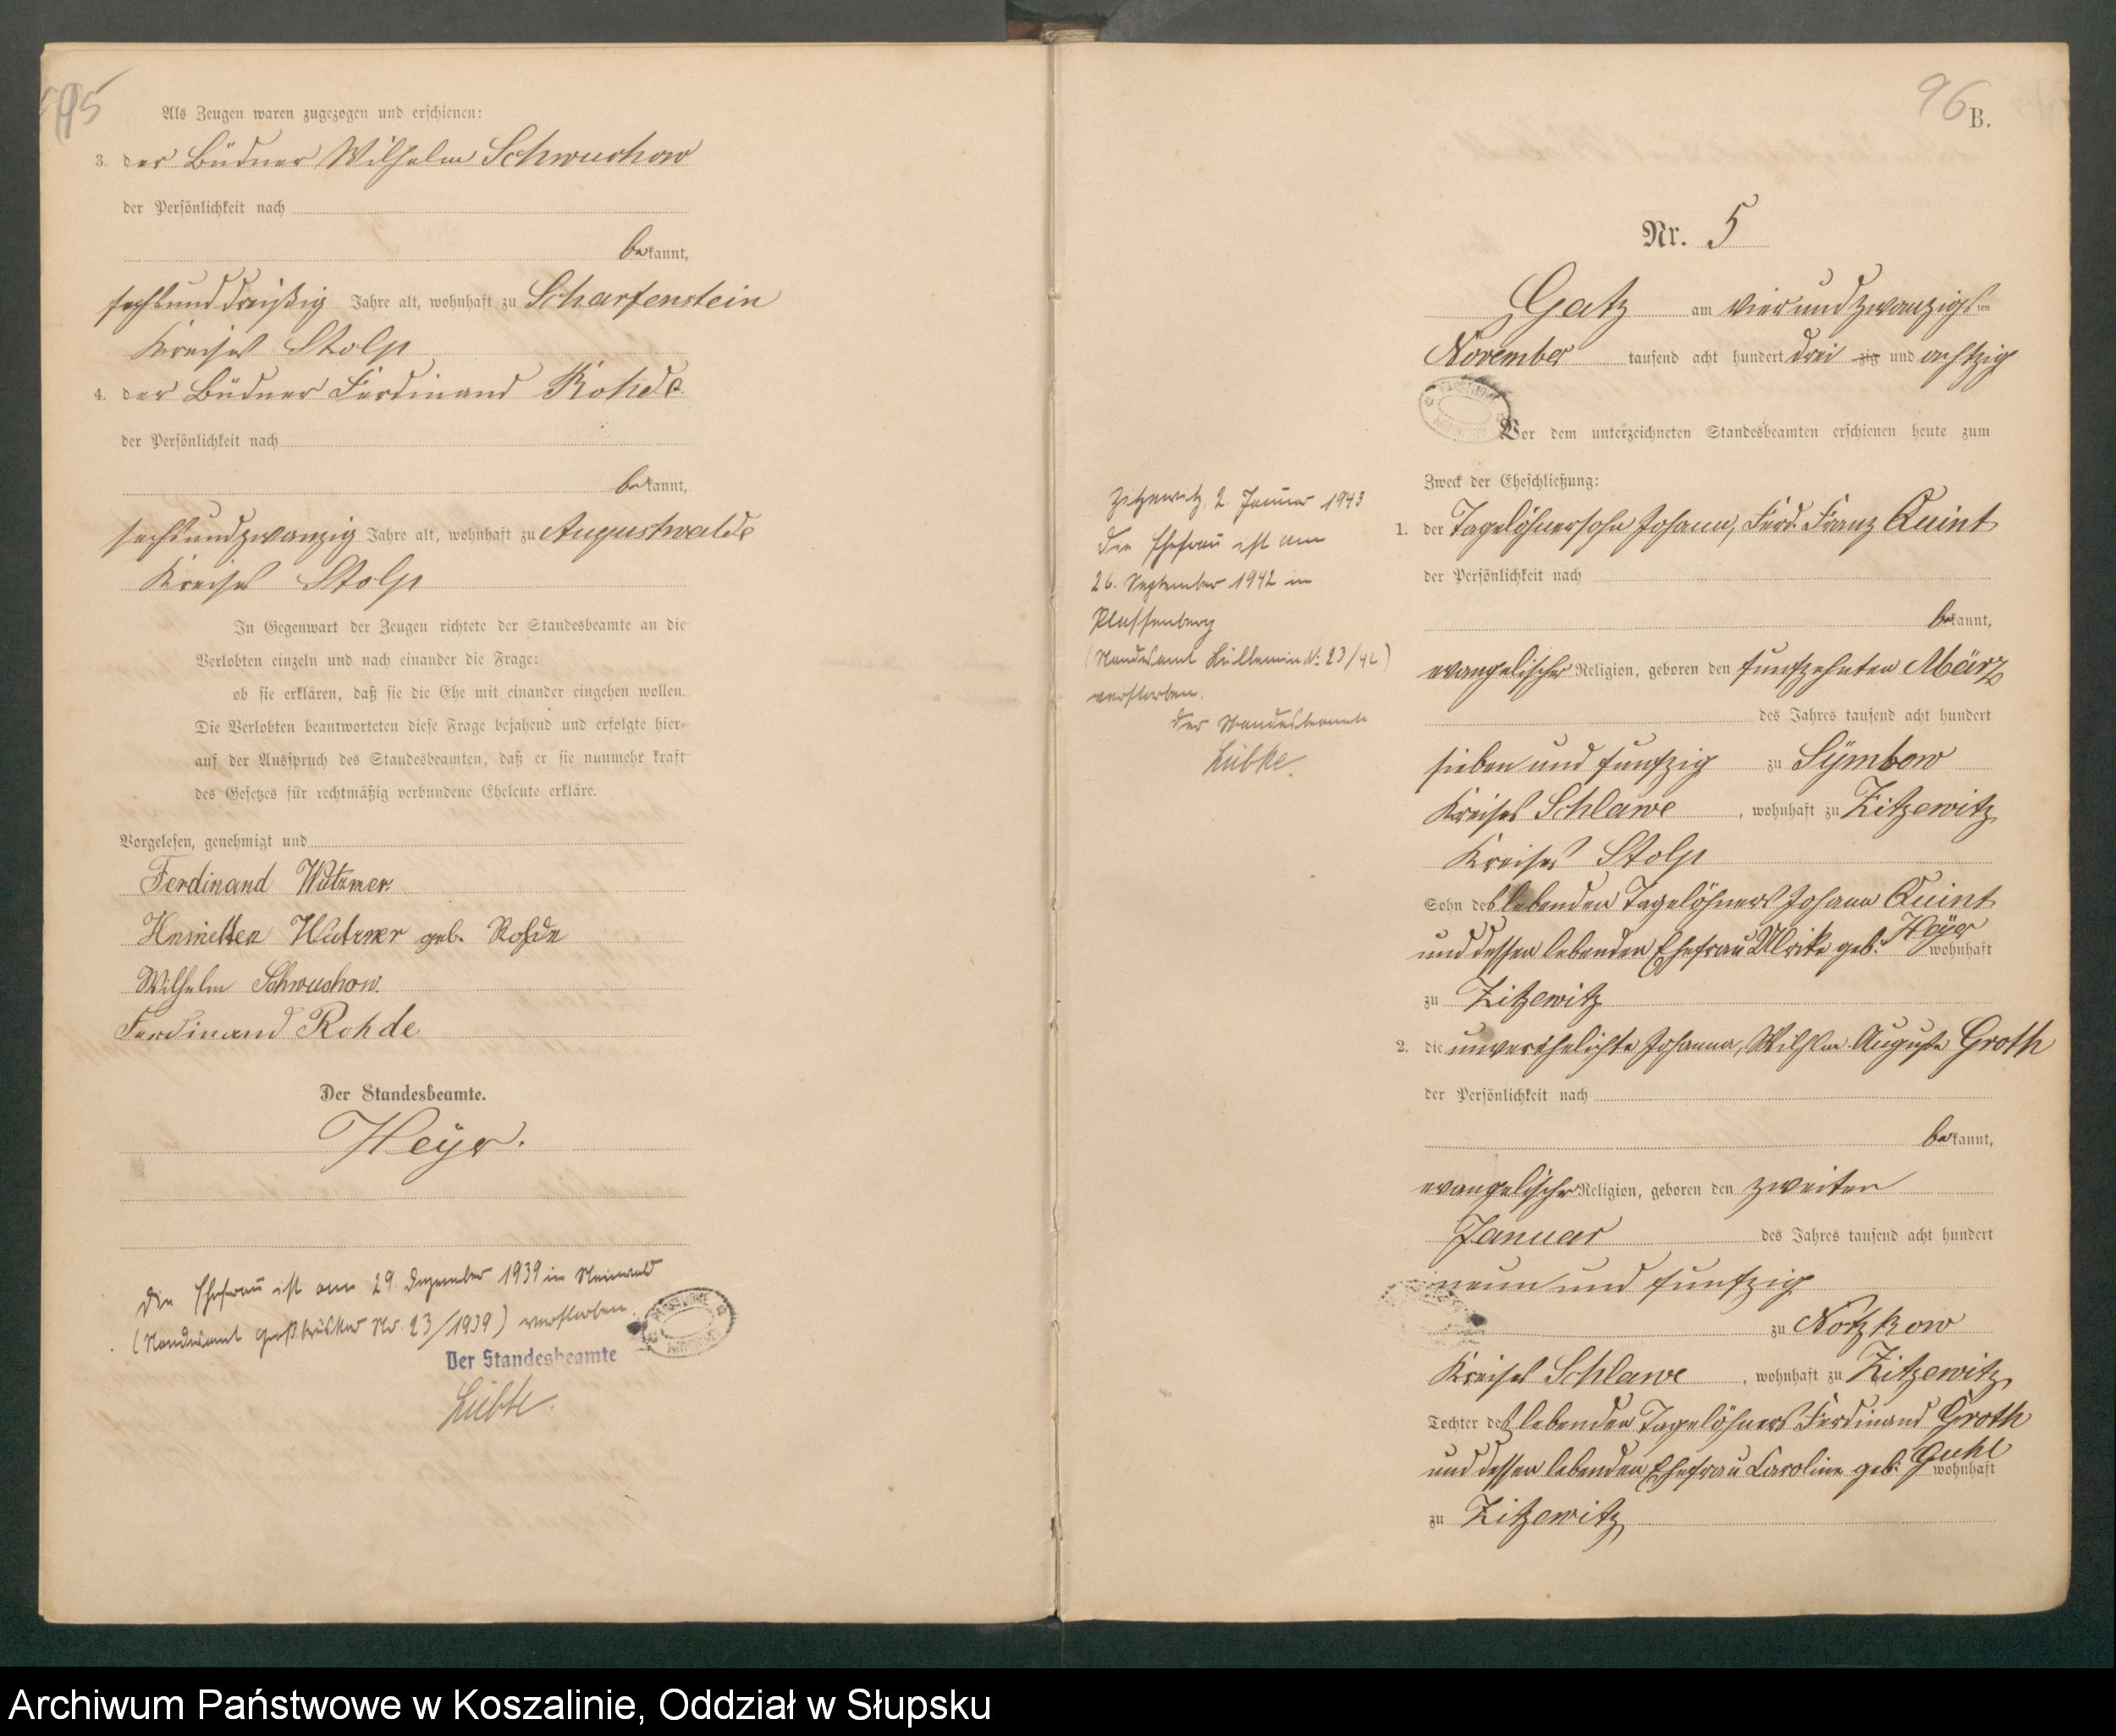 95
Als Zeugen waren zugezogen und erschienen:
3. der Büdner Wilhelm Schwuchow
der Persönlichkeit nach
bekannt,
sechsunddreißig Jahre alt, wohnhaft zu Scharfenstein
Kreises Stolp
4. der Büdner Ferdinand Rohde
der Persönlichkeit nach
bekannt,
sechsundzwanzig Jahre alt, wohnhaft zu Augustwalde
Kreises Stolp
In Gegenwart der Zeugen richtete der Standesbeamte an die
Verlobten einzeln und nach einander die Frage:
ob sie erklären, daß sie die Ehe mit einander eingehen wollen.
Die Verlobten beantworteten diese Frage bejahend und erfolgte hier-
auf der Ausspruch des Standesbeamten, daß er sie nunmehr kraft
des Gesetzes für rechtmäßig verbundene Eheleute erkläre.
Vorgelesen, genehmigt und
Ferdinand Wutzmer.
geb. Rohde
Wilhelm Schwuchow.
Ferdinand Rohde
Der Standesbeamte.
Heyer.
Die Ehefrau ist am 29. Dezember 1939 in
(Standesamt Nr. 23/1939) verstorben.
Der Standesbeamte
Lübke.
96
B.
Nr. 5
Gatz am vierundzwanzigsten
November tausend acht hundert drei zig und achtzig
Vor dem unterzeichneten Standesbeamten erschienen heute zum
Zweck der Eheschließung:
1. der Tagelöhnersohn Johann, Ferd. Franz Quint
der Persönlichkeit nach
bekannt,
evangelischer Religion, geboren den funfzehnten März
des Jahres tausend acht hundert
sieben und funfzig zu Symbow
Kreises Schlawe, wohnhaft zu Zitzewitz
Kreises Stolp
Sohn des lebenden Tagelöhners Johann Quint
und dessen lebenden Ehefrau Ulrike geb. Heyer wohnhaft
zu Zitzewitz
2. die unverehelichte Johanna, Wilhlm. Auguste Groth
der Persönlichkeit nach
bekannt,
evangelischer Religion, geboren den zweiten
Januar des Jahres tausend acht hundert
neun und funfzig
zu Nötzkow
Kreises Schlawe, wohnhaft zu Zitzewitz
Tochter des lebenden Tagelöhners Ferdinand Groth
und dessen lebenden Ehefrau Caroline geb. Guhl wohnhaft
zu Zitzewitz
Zitzewitz, 2. Januar 1943
Die Ehefrau ist am
26. September 1942 in
Plassenberg
(Standesamt Lüllemin Nº 23/42)
verstorben.
Der Standesbeamte
Lübke.
Archiwum Państwowe w Koszalinie, Oddział w Słupsku